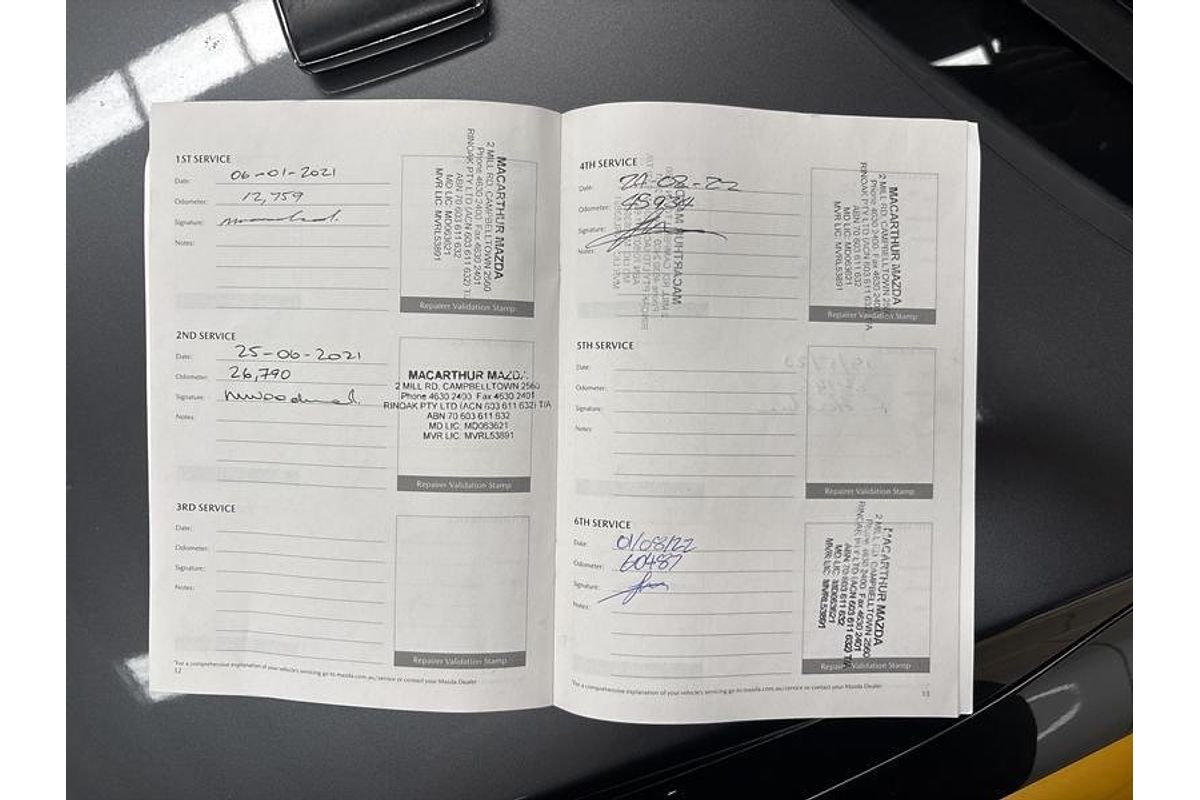 1ST SERVICE
Date: 06-01-2021
Odometer: 12,759
Signature:
Notes:
MACARTHUR MAZDA
2 MILL RD, CAMPBELLTOWN 2560
Phone 4630 2400 Fax 4630 2401
RINOAK PTY LTD (ACN 603 611 632) T/
ABN 70 603 611 632
MD LIC: MD063621
MVR LIC: MVRL53891
Repairer Validation Stamp
2ND SERVICE
Date: 25-06-2021
Odometer: 26,790
Signature:
Notes:
MACARTHUR MAZDA
2 MILL RD, CAMPBELLTOWN 2560
Phone 4630 2400 Fax 4630 2401
RINOAK PTY LTD (ACN 603 611 632) T/A
ABN 70 603 611 632
MD LIC: MD063621
MVR LIC: MVRL53891
Repairer Validation Stamp
3RD SERVICE
Date:
Odometer:
Signature:
Notes:
Repairer Validation Stamp
*For a comprehensive explanation of your vehicle's servicing go to mazda.com.au/service or contact your Mazda Dealer
12
4TH SERVICE
Date:
Odometer:
Signature:
Notes:
MACARTHUR MAZDA
2 MILL RD, CAMPBELLTOWN
Phone 4630 2400 Fax 4630 240
RINOAK PTY LTD (ACN 603 611 632) T/A
ABN 70 603 611 632
MD LIC: MD063621
MVR LIC: MVRL53891
Repairer Validation Stamp
5TH SERVICE
Date:
Odometer:
Signature:
Notes:
Repairer Validation Stamp
6TH SERVICE
Date: 01/08/22
Odometer: 60487
Signature:
Notes:
MACARTHUR MAZDA
2 MILL RD, CAMPBELLTOWN 2560
Phone 4630 2400 Fax 4630 2401
RINOAK PTY LTD (ACN 603 611 632) T/A
ABN 70 603 611 632
MD LIC: MD063621
MVR LIC: MVRL53891
Repairer Validation Stamp
*For a comprehensive explanation of your vehicle's servicing go to mazda.com.au/service or contact your Mazda Dealer
13